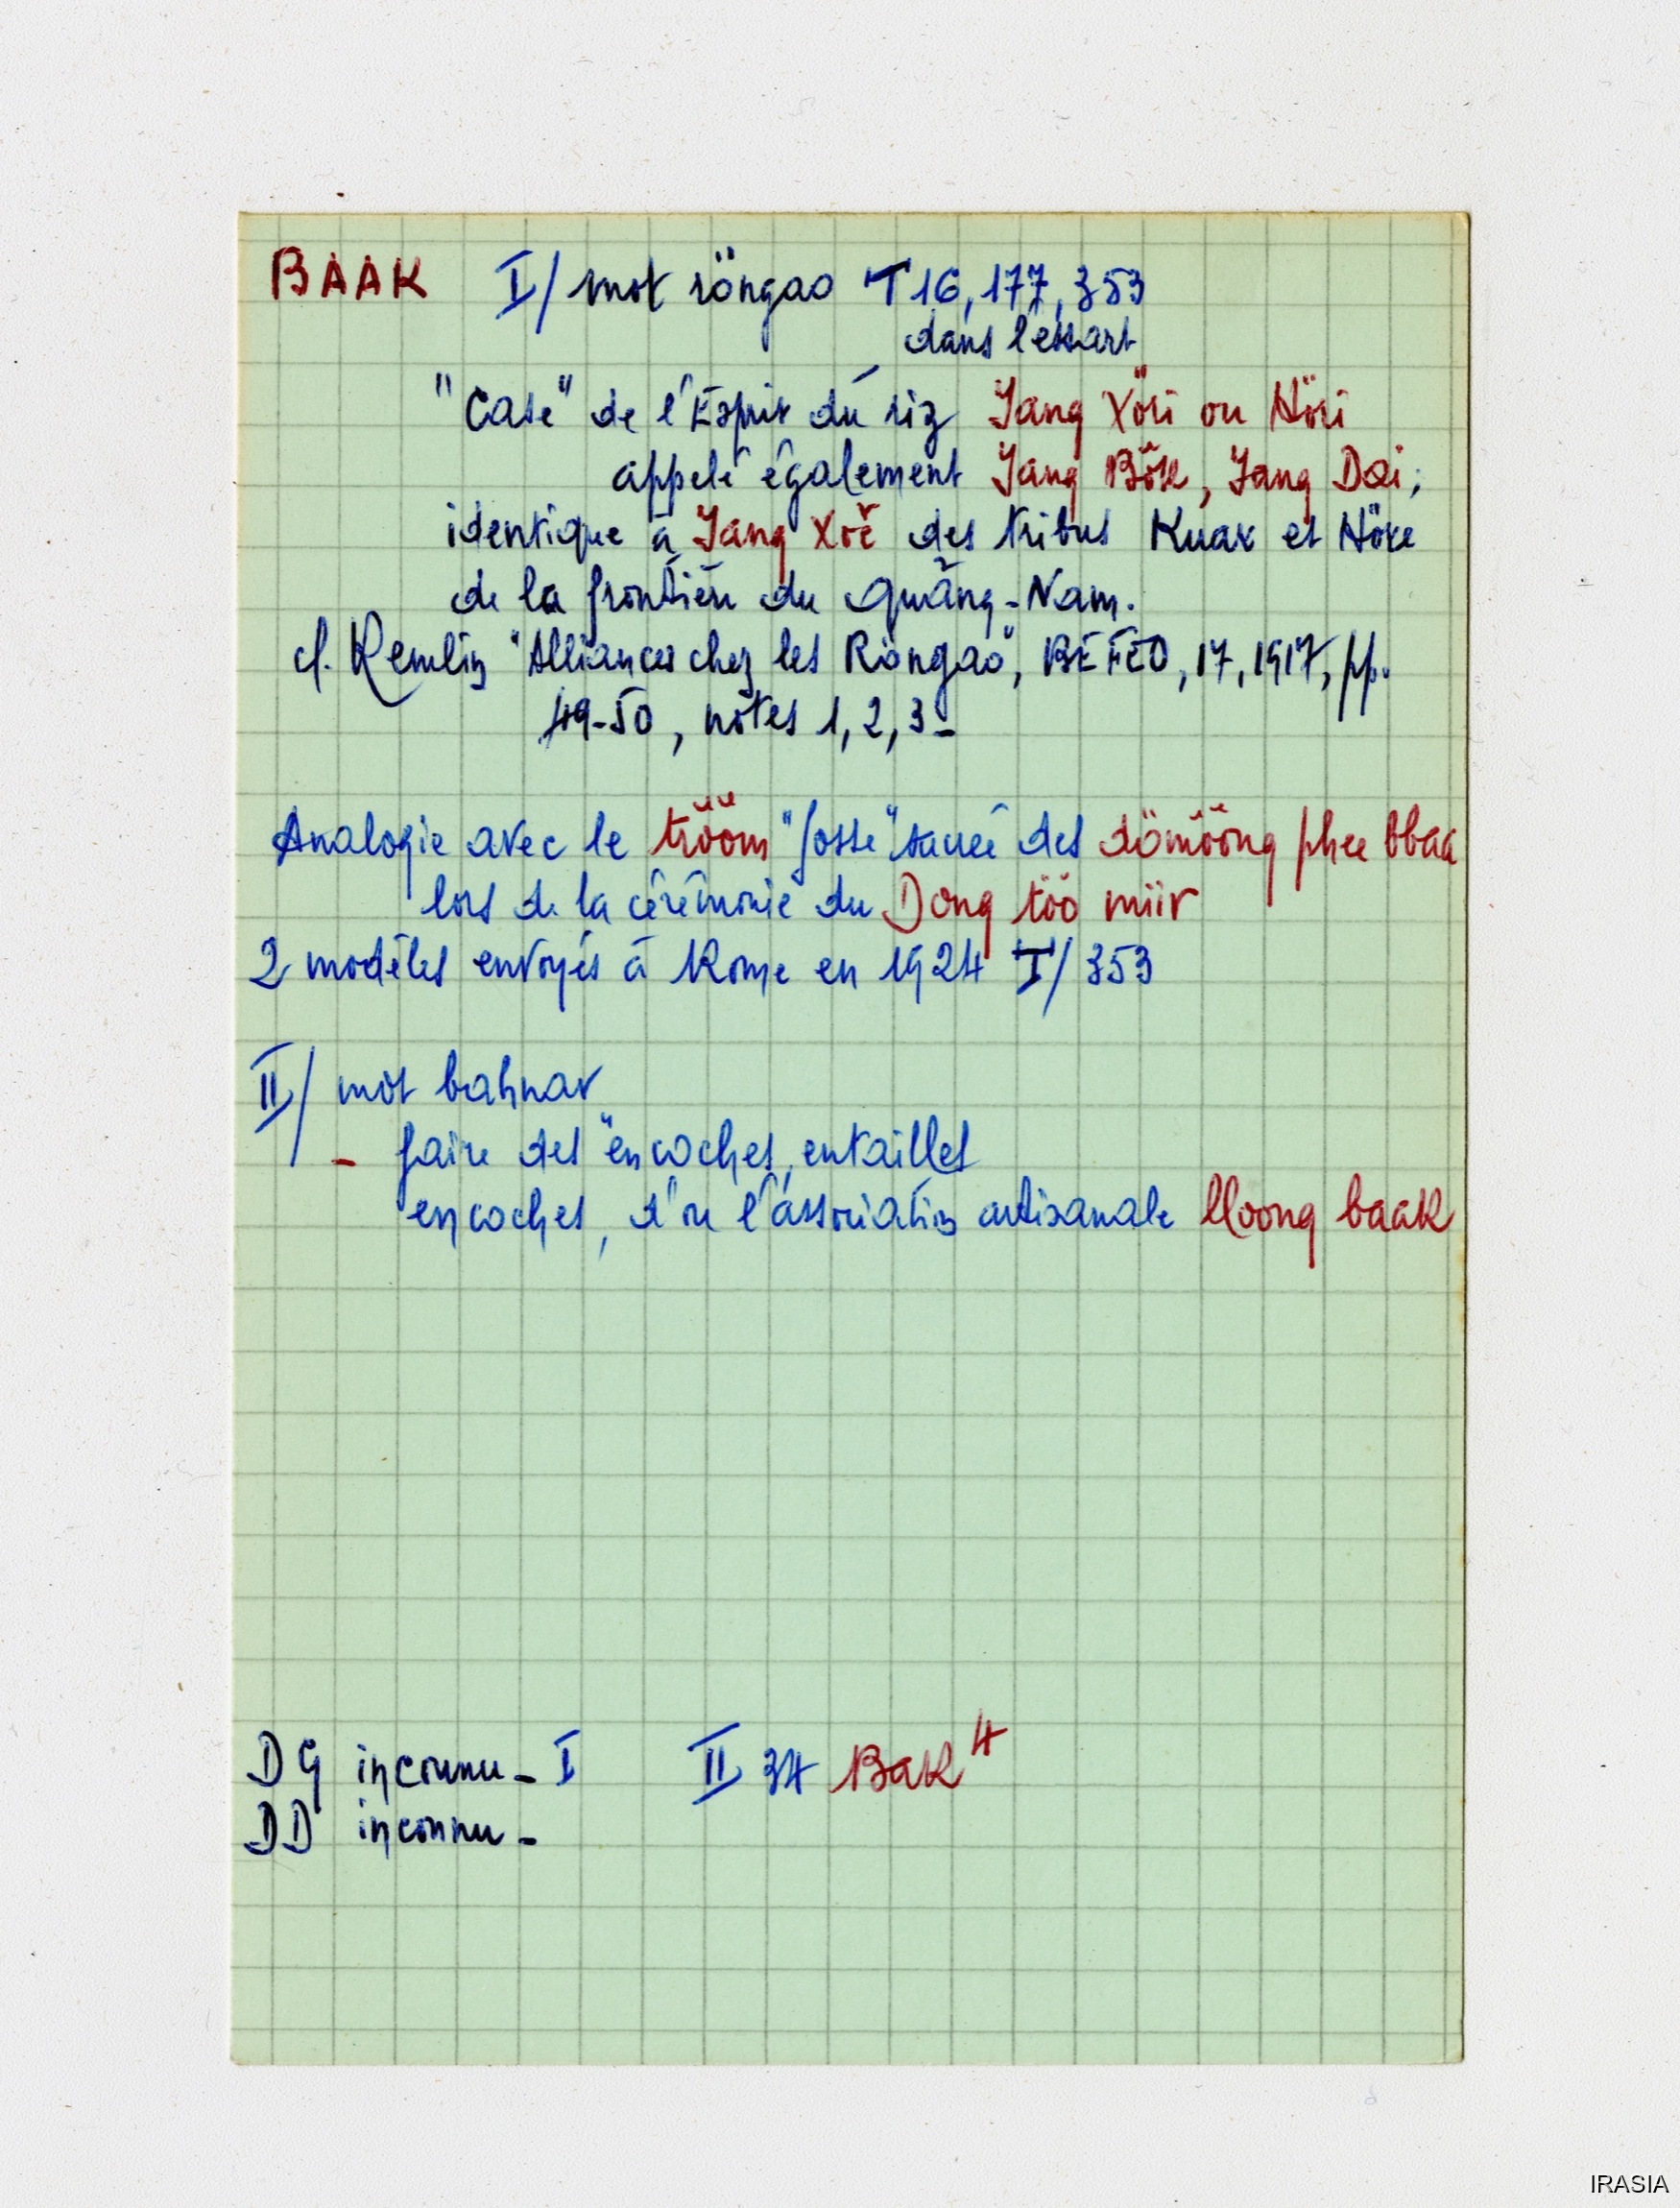 BAAK I/ mot röngao T 16, 177, 353
dans l'essart
"Case" de l'Esprit du riz Yang Xöri ou Höri
appelé également Yang Bök, Yang Dai;
identique à Yang Xŏĕ des tribus Kuax et Höre
de la frontière du Quảng-Nam.
cf. Kemlin "Alliances chez les Röngao", BEFEO, 17, 1917, pp.
49-50, notes 1, 2, 3-
Analogie avec le trööm "fosse" sacrée des dömöông phee bbaa
lors de la cérémonie du Dong töö miir
2 modèles envoyés à Rome en 1924 T/ 353
II/ mot bahnar
- faire des encoches, entailles
encoches, d'où l'association artisanale lloong baak
DG inconnu - I II 34 Bak 4
DD inconnu -
IRASIA